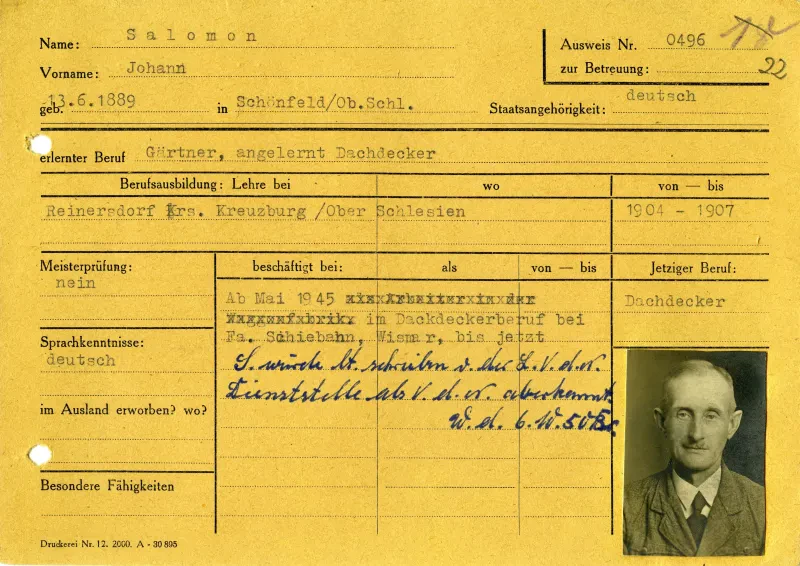 Name: Salomon
Ausweis Nr. 0496 18
Vorname: Johann
zur Betreuung: 22
geb. 13.6.1889 in Schönfeld/Ob.Schl. Staatsangehörigkeit: deutsch
erlernter Beruf Gärtner, angelernt Dachdecker
Berufsausbildung: Lehre bei wo von — bis
Reinersdorf Krs. Kreuzburg /Ober Schlesien 1904 - 1907
Meisterprüfung: beschäftigt bei: als von — bis Jetziger Beruf:
nein
Ab Mai 1945 Dachdecker
im Dackdeckerberuf bei
Sprachkenntnisse: Fa. Schiebahn, Wismar, bis jetzt
deutsch
S. wurde lt. schreiben v. der L.V.d.N.
Dienststelle als V.d.N. aberkannt.
im Ausland erworben? wo?
W. d. 6.
Besondere Fähigkeiten
Druckerei Nr. 12. 2000. A - 30 895